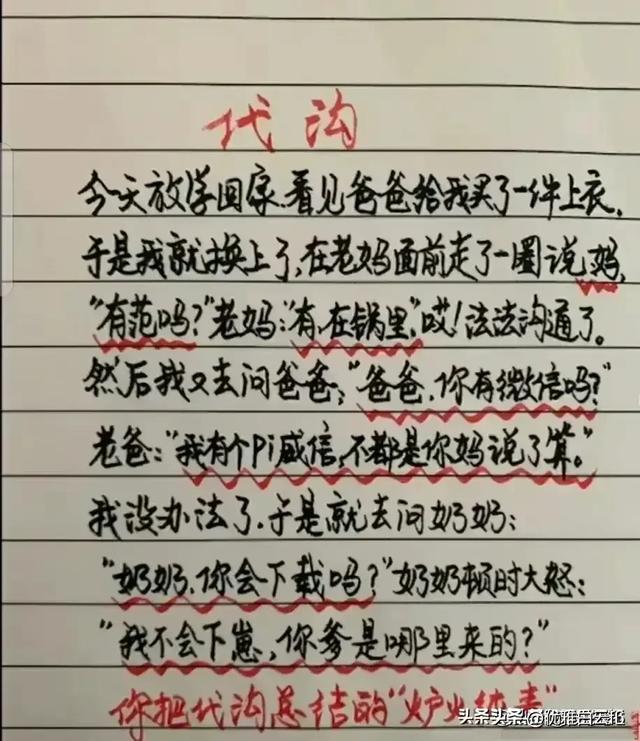 代沟
今天放学回家.看见爸爸给我买了一件上衣,
于是我就换上了,在老妈面前走了一圈说妈,
"有范吗?"老妈:"有,在锅里,"哎!法法沟通了。
然后我又去问爸爸:"爸爸.你有微信吗?"
老爸:"我有个Pi威信,不都是你妈说了算。"
我没办法了.于是就去问奶奶:
"奶奶.你会下载吗?"奶奶顿时大怒:
"我不会下崽,你爹是哪里来的?"
你把代沟总结的"炉火纯青"
头条头条@优雅白云朵